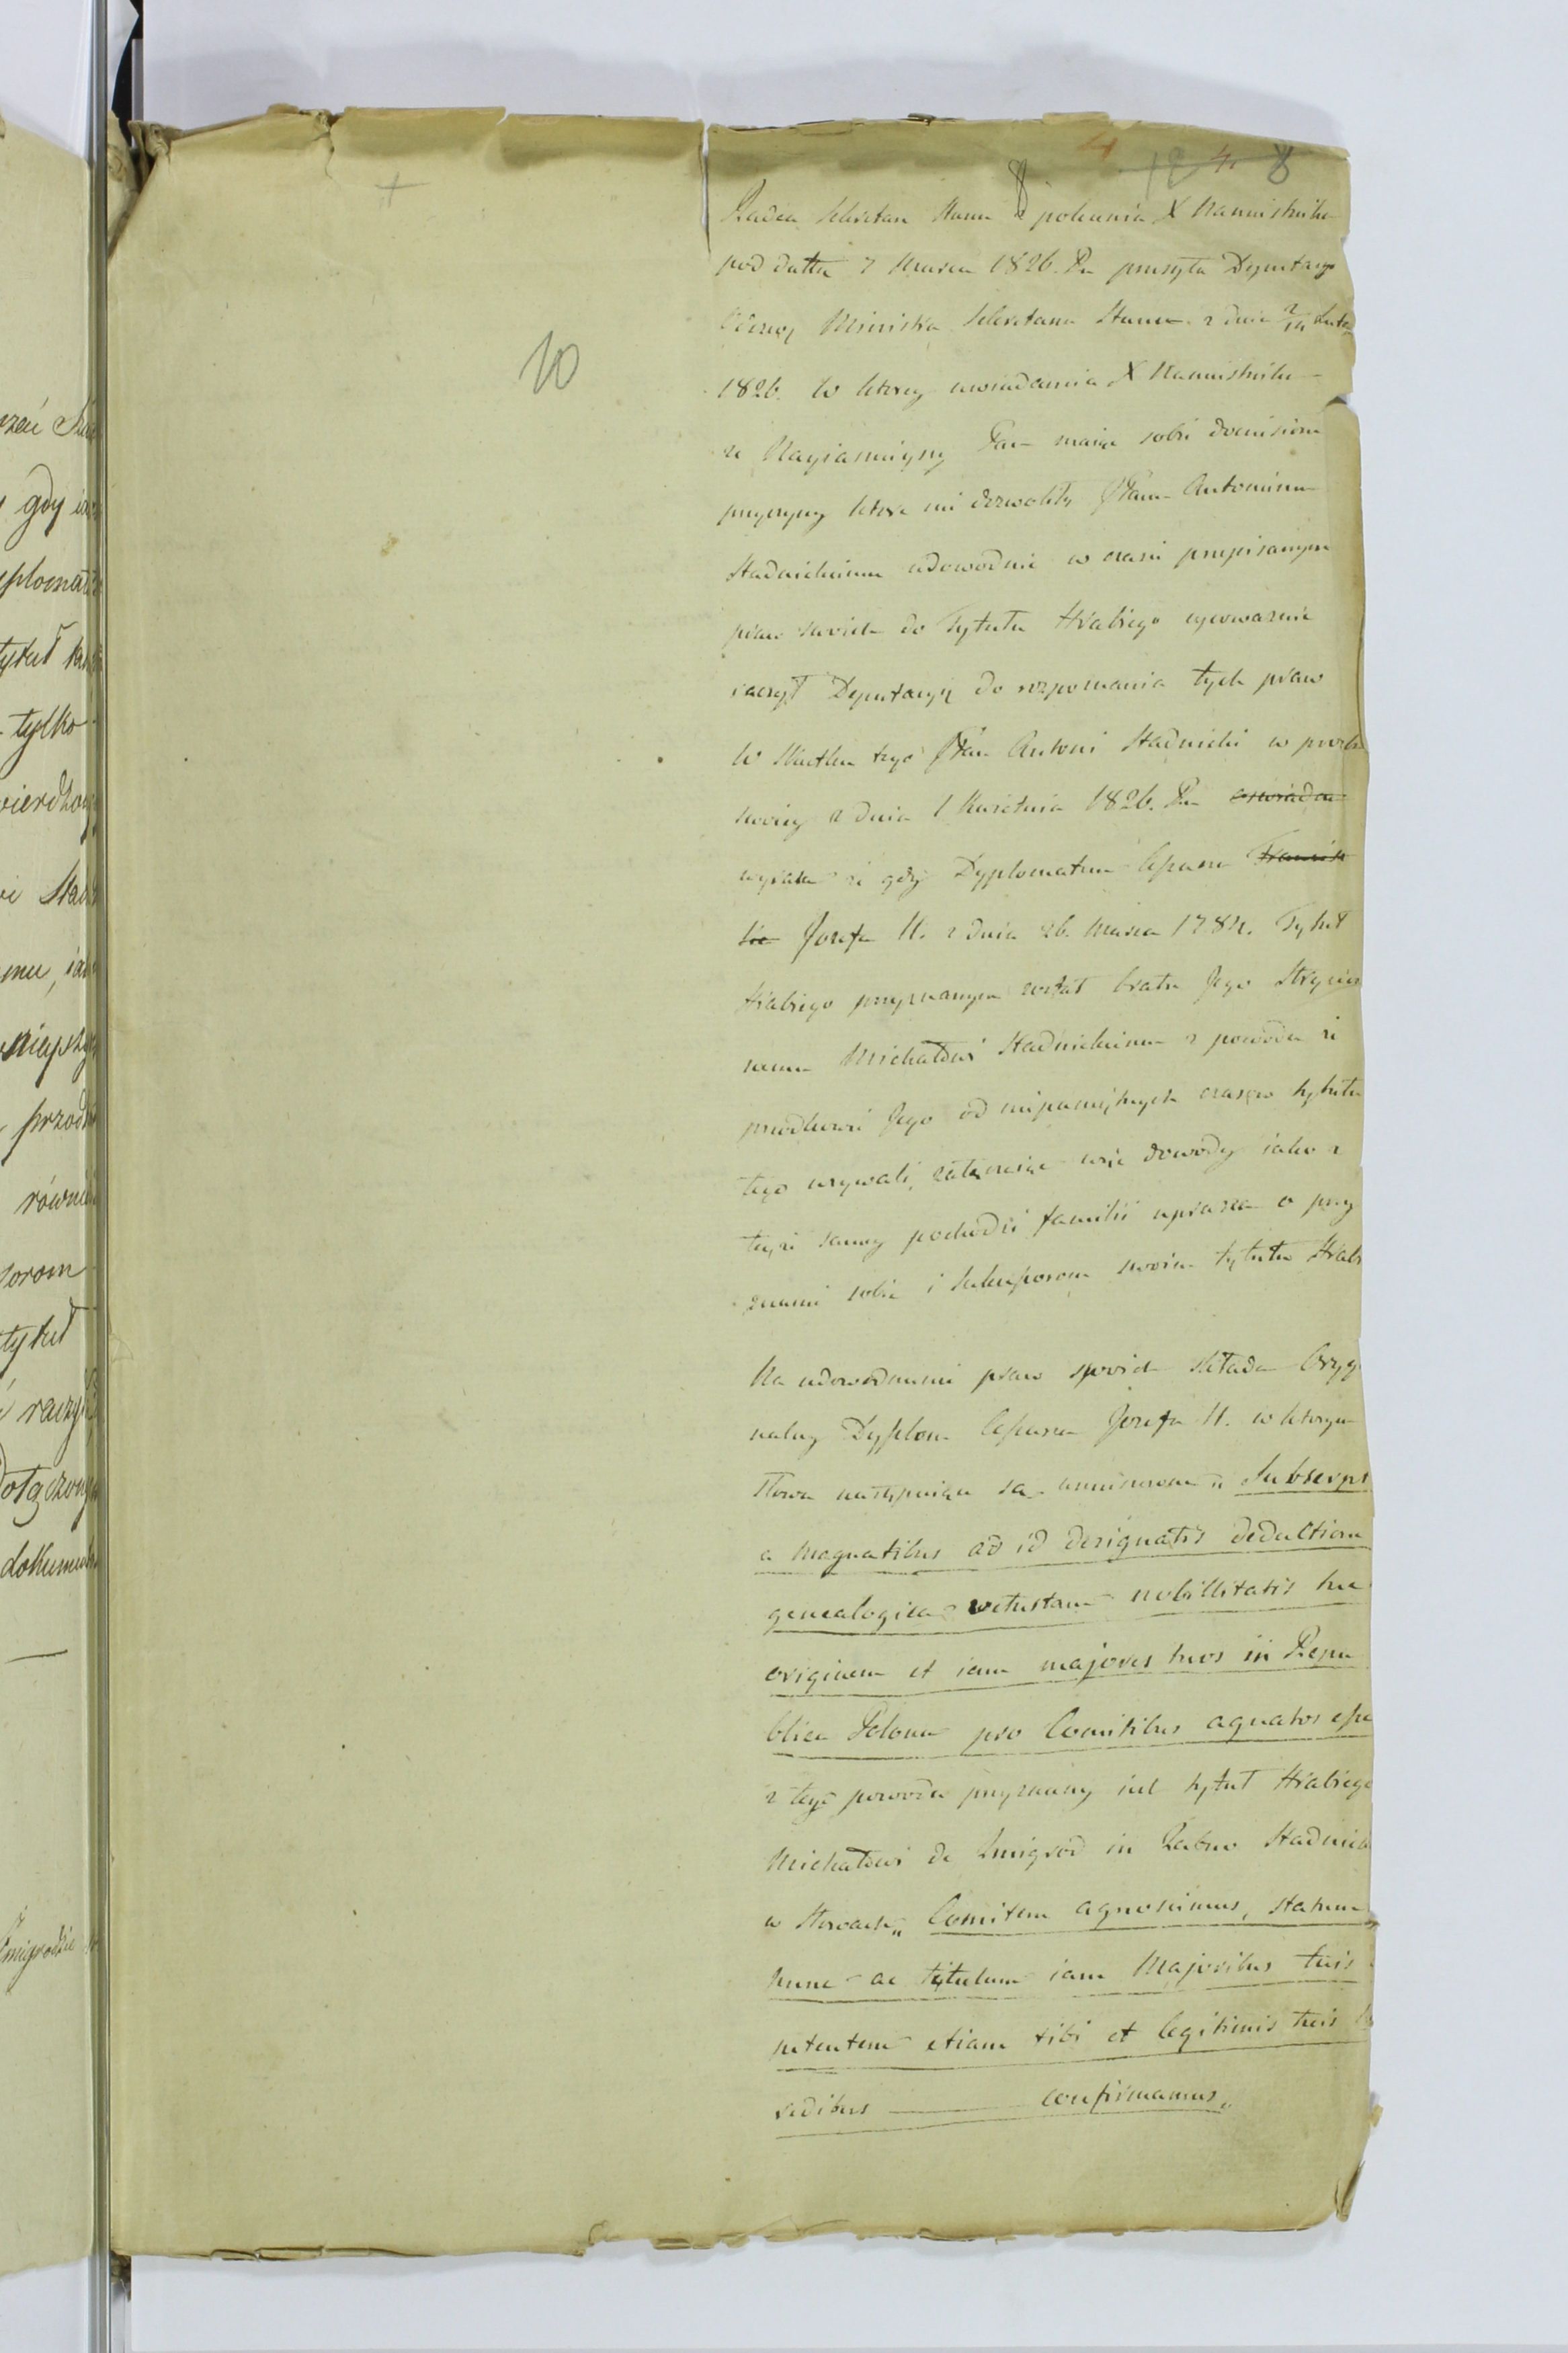 4 12 4. 8
8
Radca Sekretarz Stanu z polecenia X Namiestnika
pod dattą 7 Marca 1826. Ru przesyła Deputacyi
Odezwę Ministra Sekretarza Stanu z dnia 2/14 Lute
1826. w ktorey uwiadamia X Namiestnika
10
że Nayiasnieyszy Pan maiąc sobie doniesione
przyczyny ktore nie dozwoliły JPanu Antoniemu
Stadnickiemu udowodnić w czasie przepisanym
praw swoich do Tytułu Hrabiego upoważnić
raczył Deputacyą do rozpoznania tych praw
W Skutku tego JPan Antoni Stadnicki w prozbie
swoiey z dnia 1 Kwietnia 1826. Ru oswiadcza
wyraża że gdy Dyplomatem Cesarza Francisz
ka Jozefa II. z dnia 26. Marca 1784. Tytuł
Hrabiego przyznanym został bratu Jego Stryiecz
nemu Michałowi Stadnickiemu z powodu że
przodkowie Jego od niepamiętnych czasow tytułu
tego używali, załączaiąc więc dowody iako z
teyże samey pochodzi familii uprasza o przy
znanie sobie i Sukcessorom swoim tytułu Hrab
Na udowodnienie praw swoich składa Oryg
nalny Dyplom Cesarza Jozefa II. w ktorym
słowa następuiące są umieszczone „ Subscrips
a Magnatibus ad id designatis deductione
genealogica vetustam nobillitatis tuæ
originem et iam majores tuos in Repu
blica Polona pro Comitibus agnatos esse
z tego powodu przyznany iest tytuł Hrabiego
Michałowi de Zmigrod in Labno Stadnick
w słowach „ Comitem agnoscimus, statum
hunc ac titulum iam Majoribus tuis
petentem etiam tibi et legitimis tuis hæ
redibus ——— confirmamus „
gdy
tytuł
tylko
równie
tytuł